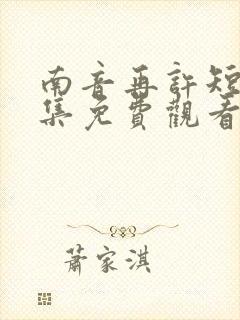 南音再許短
集免費觀看
蕭家淇